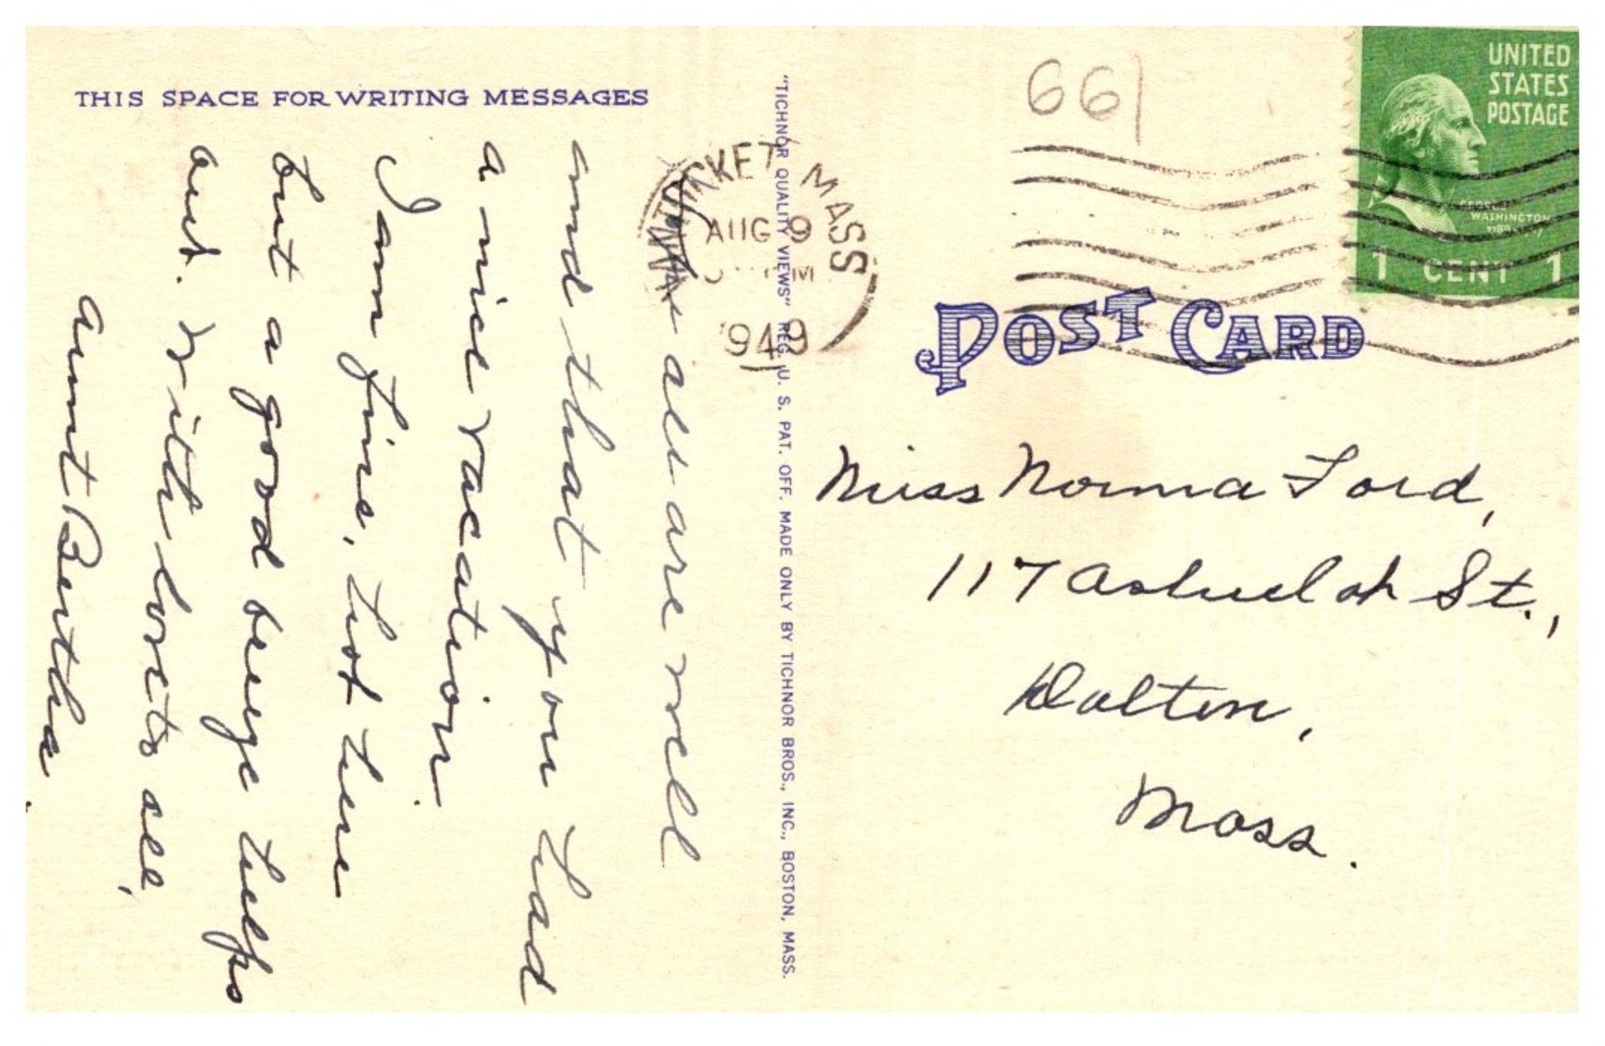 THIS SPACE FOR WRITING MESSAGES
all are well
and that you had
a nice vacation.
I am fine, hot here
but a good breeze helps
out. With love to all,
Aunt Bertha.
"TICHNOR QUALITY VIEWS" REG. U. S. PAT. OFF. MADE ONLY BY TICHNOR BROS., INC., BOSTON, MASS.
NANTUCKET MASS
AUG 9
1949
661
UNITED
STATES
POSTAGE
GEORGE
WASHINGTON
1 CENT 1
POST CARD
Miss Norma Ford,
117 Ashuelot St.,
Dalton,
Mass.